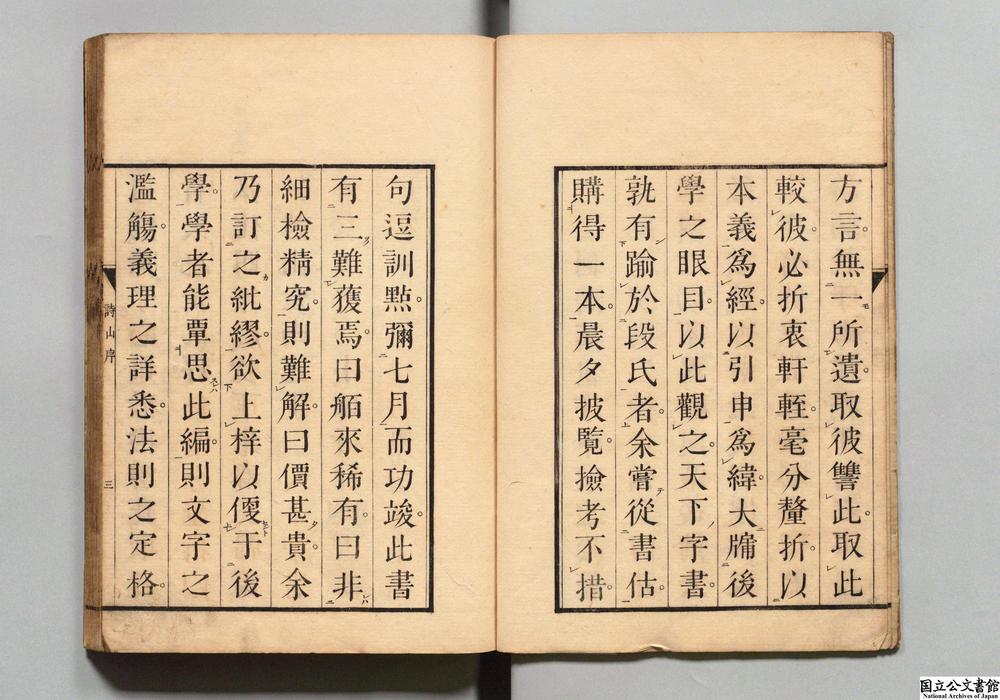 方言無一所遺取彼讐此取此
較彼必折衷軒輊毫分釐折以
本義爲經以引申爲緯大牖後
學之眼目以此觀之天下字書
孰有踰於段氏者余嘗從書估
購得一本晨夕披覽撿考不措
句逗訓點彌七月而功竣此書
有三難獲焉曰舶來稀有曰非
細檢精究則難解曰價甚貴余
乃訂之紕繆欲上梓以便于後
學學者能覃思此編則文字之
濫觴義理之詳悉法則之定格
詩山序
三
国立公文書館
National Archives of Japan